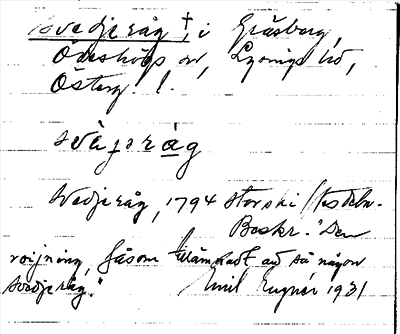 Svedjeråg †, i Gräsberg,
Ödeshögs sn, Lysings hd,
Österg. l.
svèjəråg
Svedjeråg, 1794 storski
Beskr. "Den
röijning, såsom tillämnadt att så någon
svedjeråg."
Emil Eugnér 1931